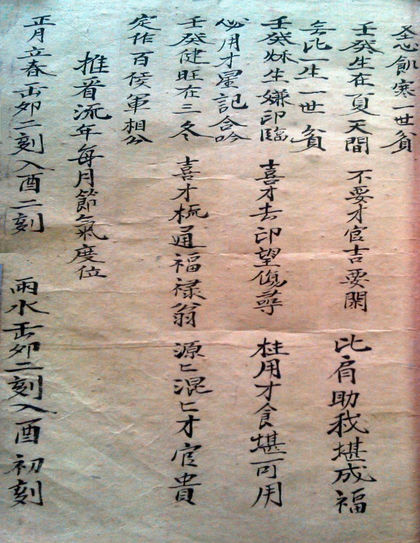 飢寒一世貧
壬癸生在夏天間 不要才官吉要開 比肩助我堪成福
無比一生一世貧
壬癸妹生嫌印臨 喜才去印望尋 柱用才食堪可用
必用才星記合吟
壬癸健旺在三冬 喜才梳通福祿翁 源匕混匕才官貴
定作百侯軍相公
推流年每月節氣度位
正月立春缶卯二刻入酉二刻 雨水缶卯二刻入酉初刻